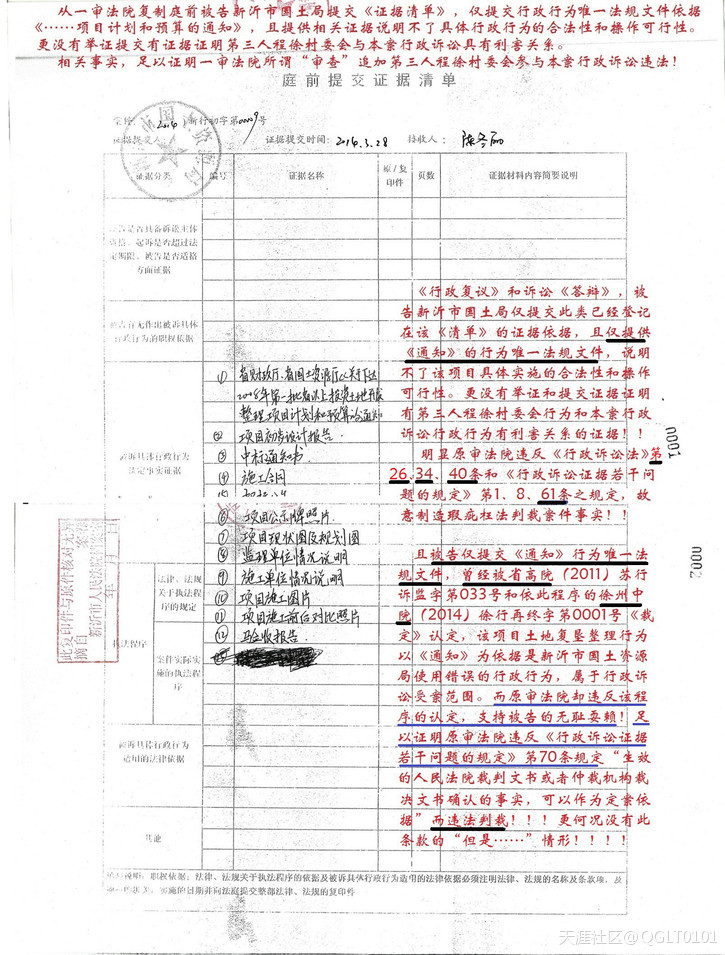 从一审法院复制庭前被告新沂市国土局提交《证据清单》，仅提交行政行为唯一法规文件依据
《……项目计划和预算的通知》，且提供相关证据说明不了具体行政行为的合法性和操作可行性。
更没有举证提交有证据证明第三人程徐村委会与本案行政诉讼具有利害关系。
相关事实，足以证明一审法院所谓“审查”追加第三人程徐村委会参与本案行政诉讼违法！
庭前提交证据清单
新行初字第0009号
证据提交人：
证据提交时间：2014.3.28
接收人：
证据分类
编号
证据名称
原/复印件
页数
证据材料内容简要说明
被告是否具备诉讼主体
资格、起诉是否超过法
定期限、被告是否适格
方面证据
被告有无作出被诉具体
行政行为的职权依据
被诉具体行政行为
认定事实证据
① 省财政厅、省国土资源厅
2008年第一批省以上投资土地开发
整理项目计划和预算的通知
② 项目初步设计报告
③ 中标通知书
④ 施工合同
⑥ 项目公示牌照片
⑦ 项目现状图及规划图
⑧ 监理单位情况说明
⑨ 施工单位情况说明
⑩ 项目施工图片
⑪ 项目施工前后对比照片
⑫ 验收报告
执法程序
法律、法规
关于执法程
序的规定
案件实际实
施的执法程
序
被诉具体行政行为
适用的法律依据
其他
《行政复议》和诉讼《答辩》，被
告新沂市国土局仅提交此类已经登记
在该《清单》的证据依据，且仅提供
《通知》的行为唯一法规文件，说明
不了该项目具体实施的合法性和操作
可行性。更没有举证和提交证据证明
有第三人程徐村委会行为和本案行政
诉讼行政行为有利害关系的证据！！
明显原审法院违反《行政诉讼法》第
26、34、40条和《行政诉讼证据若干问
题的规定》第1、8、61条之规定，故
意制造瑕疵枉法判裁案件事实！！
且被告仅提交《通知》行为唯一法
规文件，曾经被省高院（2011）苏行
诉监字第033号和依此程序的徐州中
院（2014）徐行再终字第0001号《裁
定》认定，该项目土地复垦整理行为
以《通知》为依据是新沂市国土资源
局使用错误的行政行为，属于行政诉
讼受案范围。而原审法院却违反该程
序的认定，支持被告的无耻耍赖！足
以证明原审法院违反《行政诉讼证据
若干问题的规定》第70条规定“生效
的人民法院裁判文书或者仲裁机构裁
决文书确认的事实，可以作为定案依
据”而违法判裁！！！更何况没有此
条款的“但是……”情形！！！！
0001
0002
此复印件与原件核对无
摘自
新沂市人民法院
年 月 日
填写说明：职权依据：法律、法规关于执法程序的依据及被诉具体行政行为适用的法律依据必须注明法律、法规的名称及条款项，及
实施的日期并向法庭提交整部法律、法规的复印件
天涯社区@QGLT0101